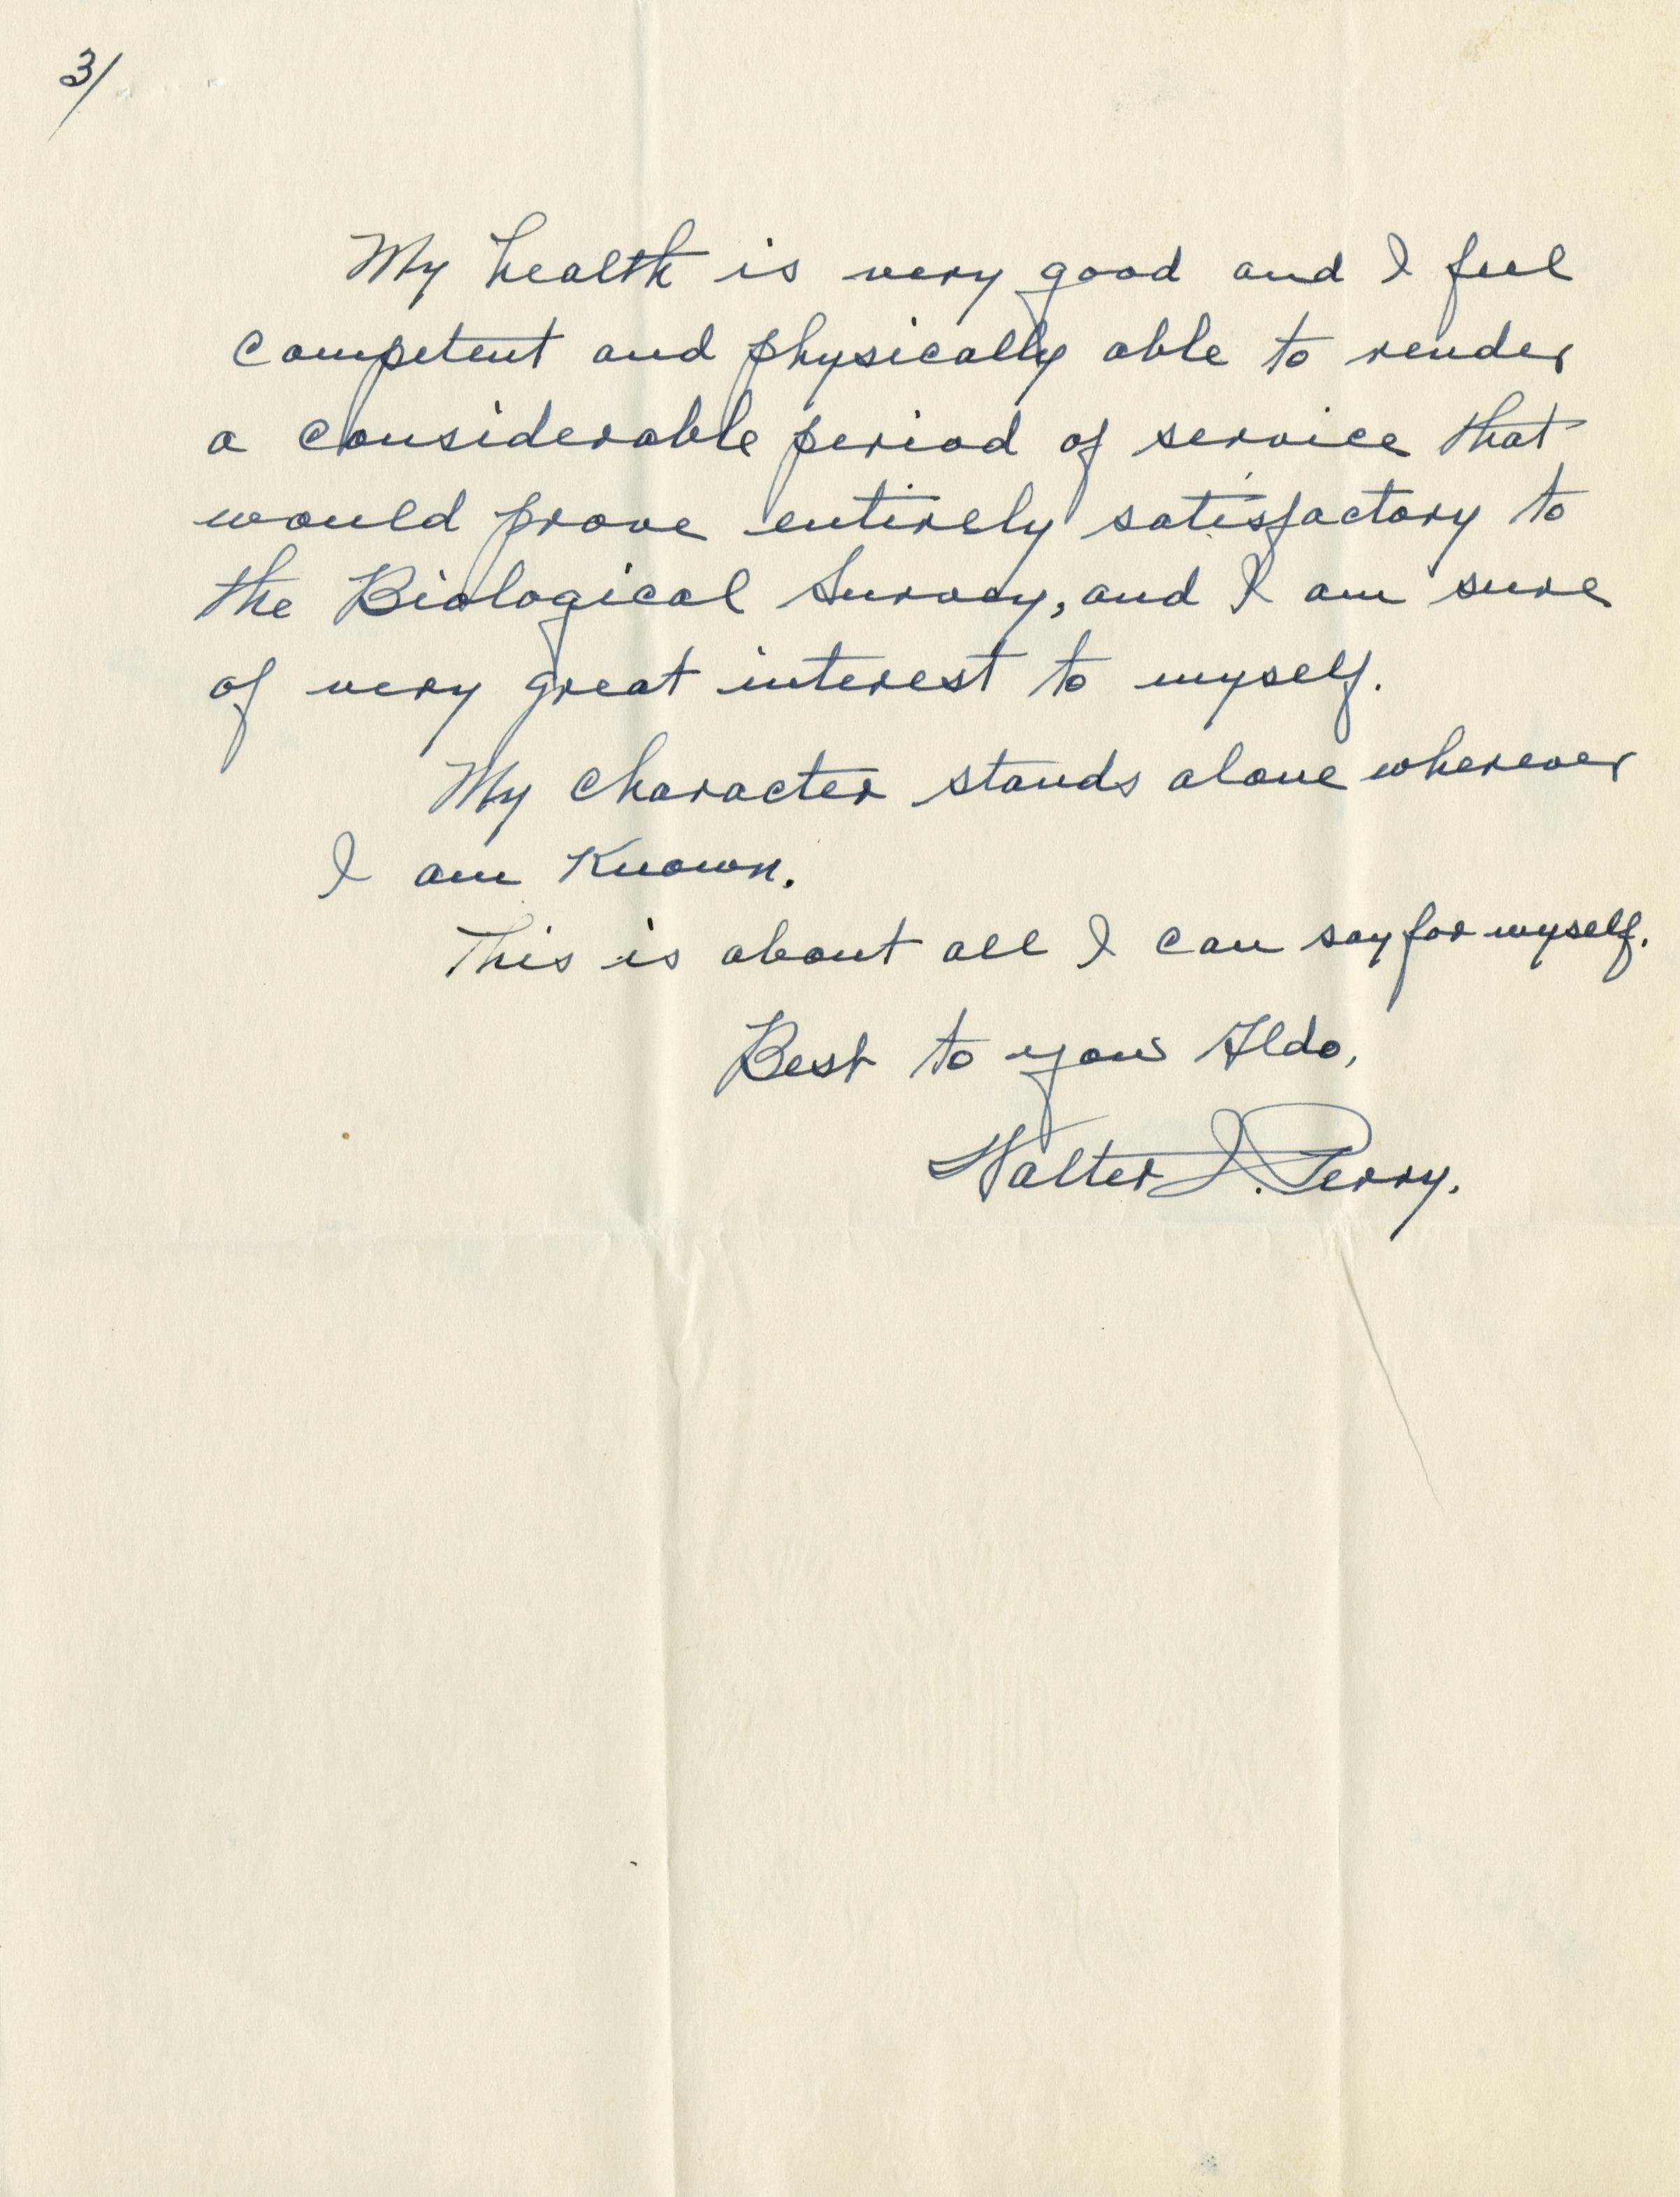 3/
My health is very good and I feel
competent and physically able to render
a considerable period of service that
would prove entirely satisfactory to
the Biological Survey, and I am sure
of very great interest to myself.
My character stands alone wherever
I am Known.
This is about all I can say for myself.
Best to you Aldo,
Walter J. Perry.